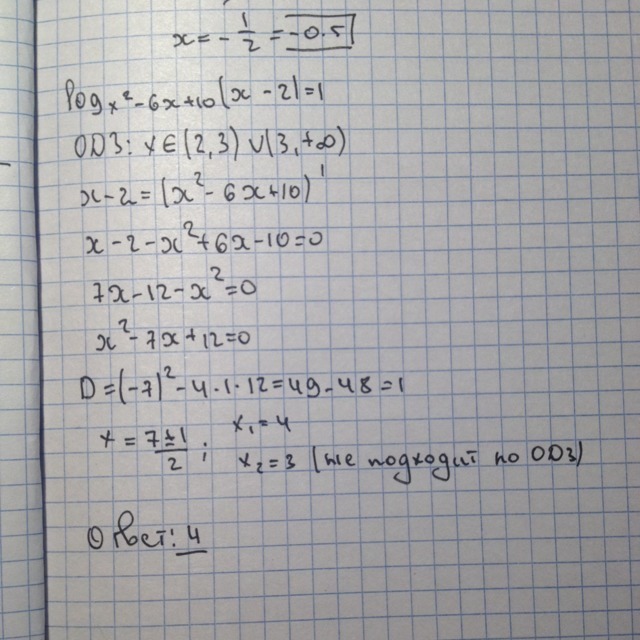 x = - 1/2 = -0.5
log x²-6x+10 (x - 2) = 1
ОДЗ: x ∈ (2,3) ∪ (3,+∞)
x-2 = (x² - 6x+10)¹
x - 2 - x² + 6x - 10 = 0
7x - 12 - x² = 0
x² - 7x + 12 = 0
D = (-7)² - 4·1·12 = 49 - 48 = 1
x = 7±1/2 ; x₁ = 4
x₂ = 3 (не подходит по ОДЗ)
Ответ: 4